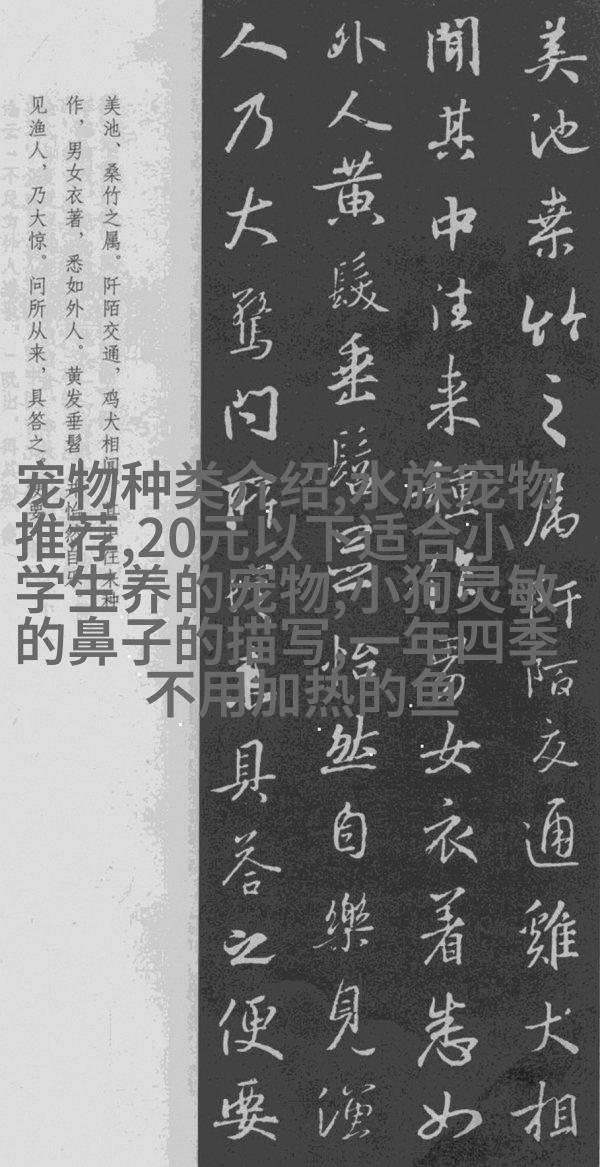 美池桒竹之属阡陌交通雞犬相
聞其中往来種作男女衣着悉如
外人黄髮垂髫并怡然自樂見漁
人乃大驚問所從来具答之便要
美池、桑竹之属。阡陌交通，鸡犬相闻。其中往来种
作，男女衣著，悉如外人。黄发垂髫，并怡然自乐。
见渔人，乃大惊。问所从来，具答之。便要
宠物种类介绍,水族宠物
推荐,20元以下适合小
学生养的宠物,小狗灵敏
的鼻子的描写,一年四季
不用加热的鱼